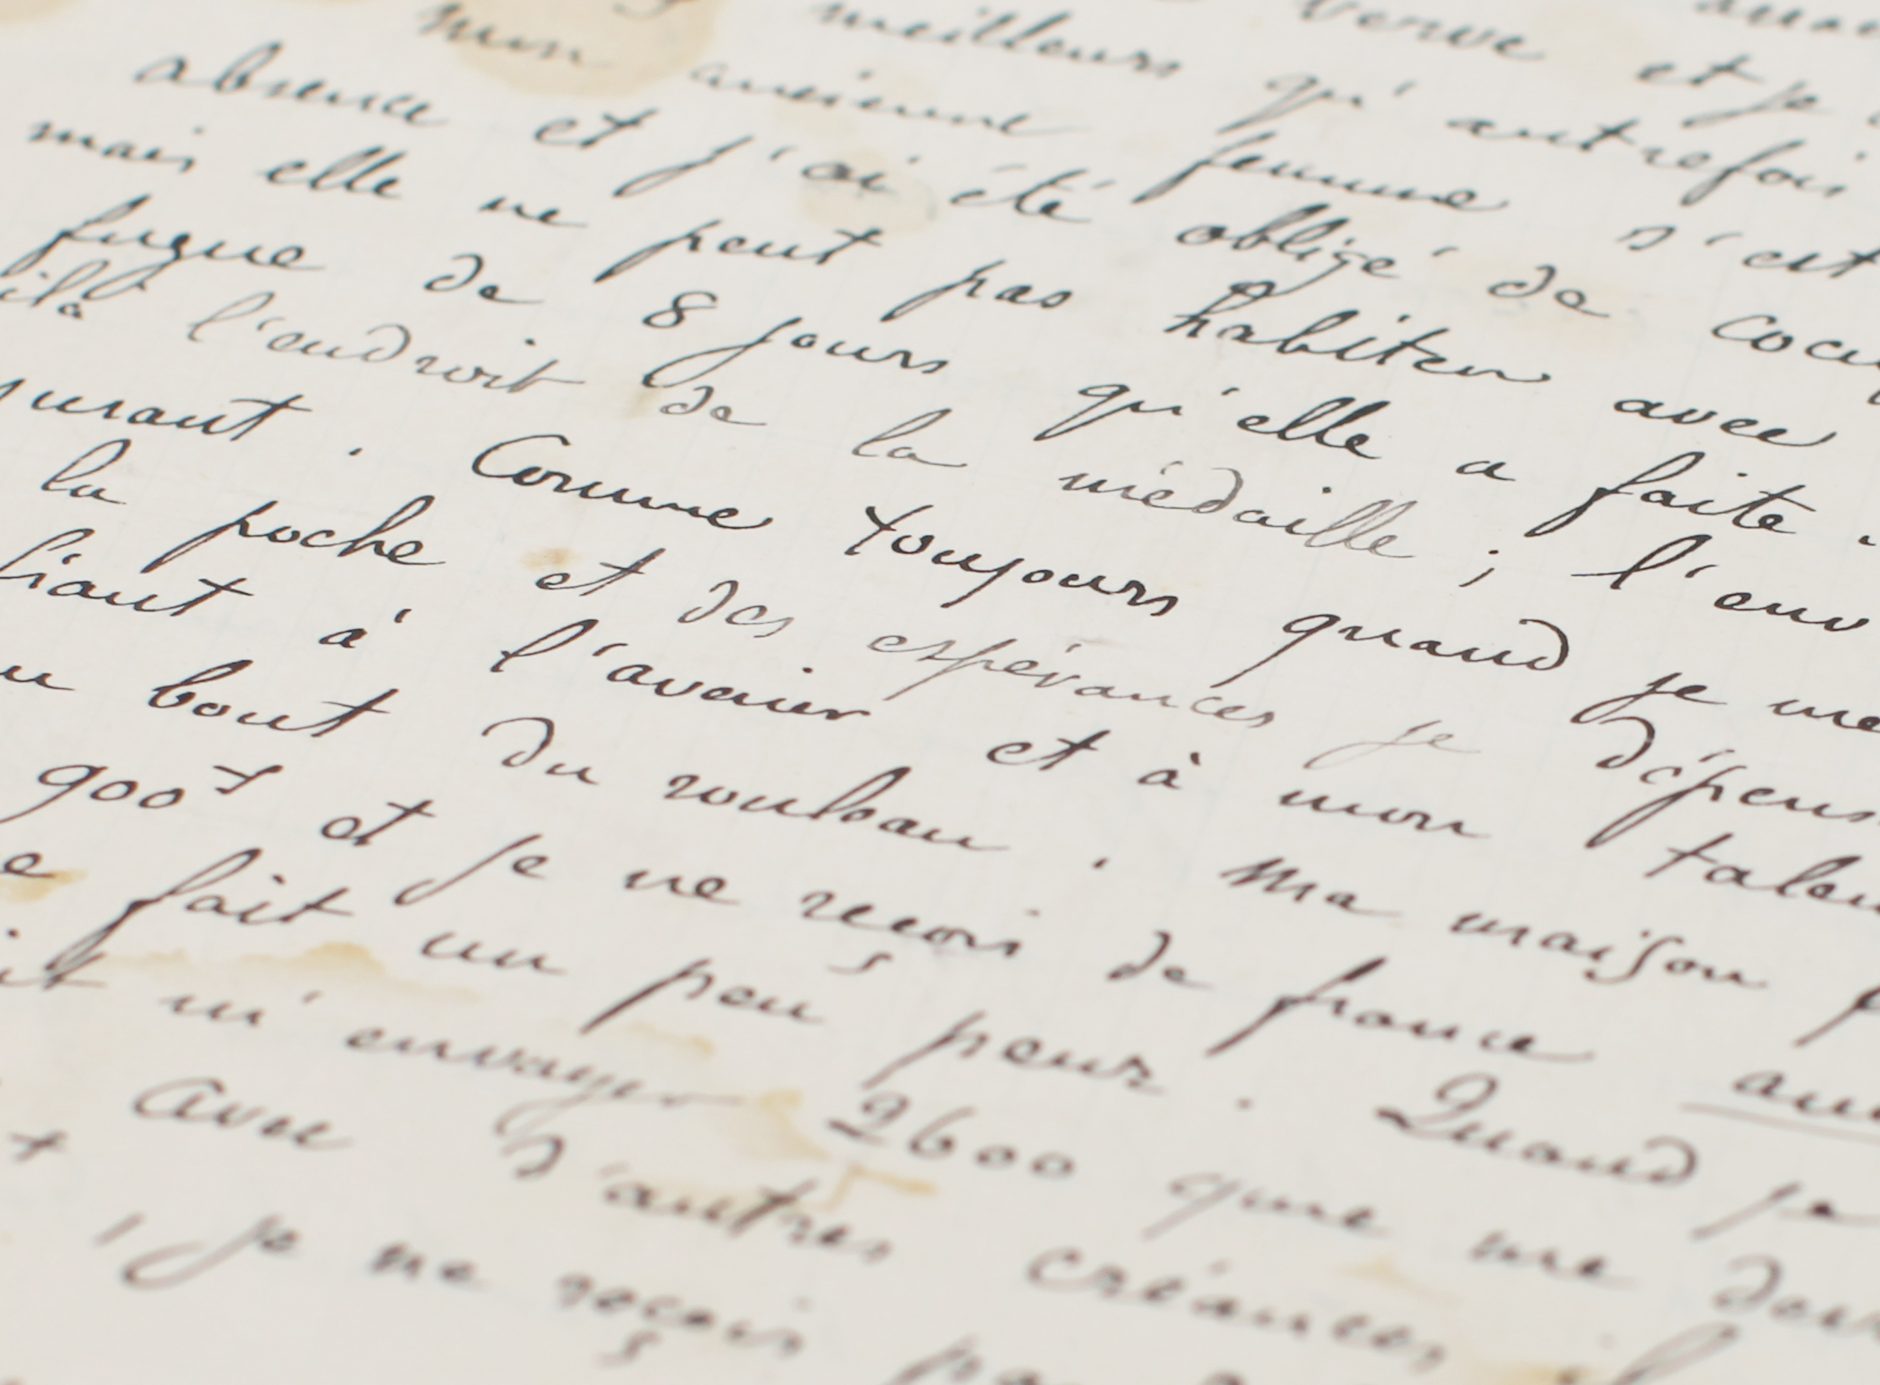 verve et je
meilleurs qu'autrefois
mon ancienne femme s'est
absence et j'ai été obligé de cocu
mais elle ne peut pas habiter avec
fugue de 8 jours qu'elle a faite .
ilà l'endroit de la médaille ; l'env
urant . Comme toujours quand je me
la poche et des espérances je dépens
liant à l'avenir et à mon talen
u bout du rouleau . Ma maison
900f et je ne reçois de france auc
e fait un peu peur . Quand je
it m'envoyer 2600 que me dev
avec d'autres créances
, je ne reçois pa